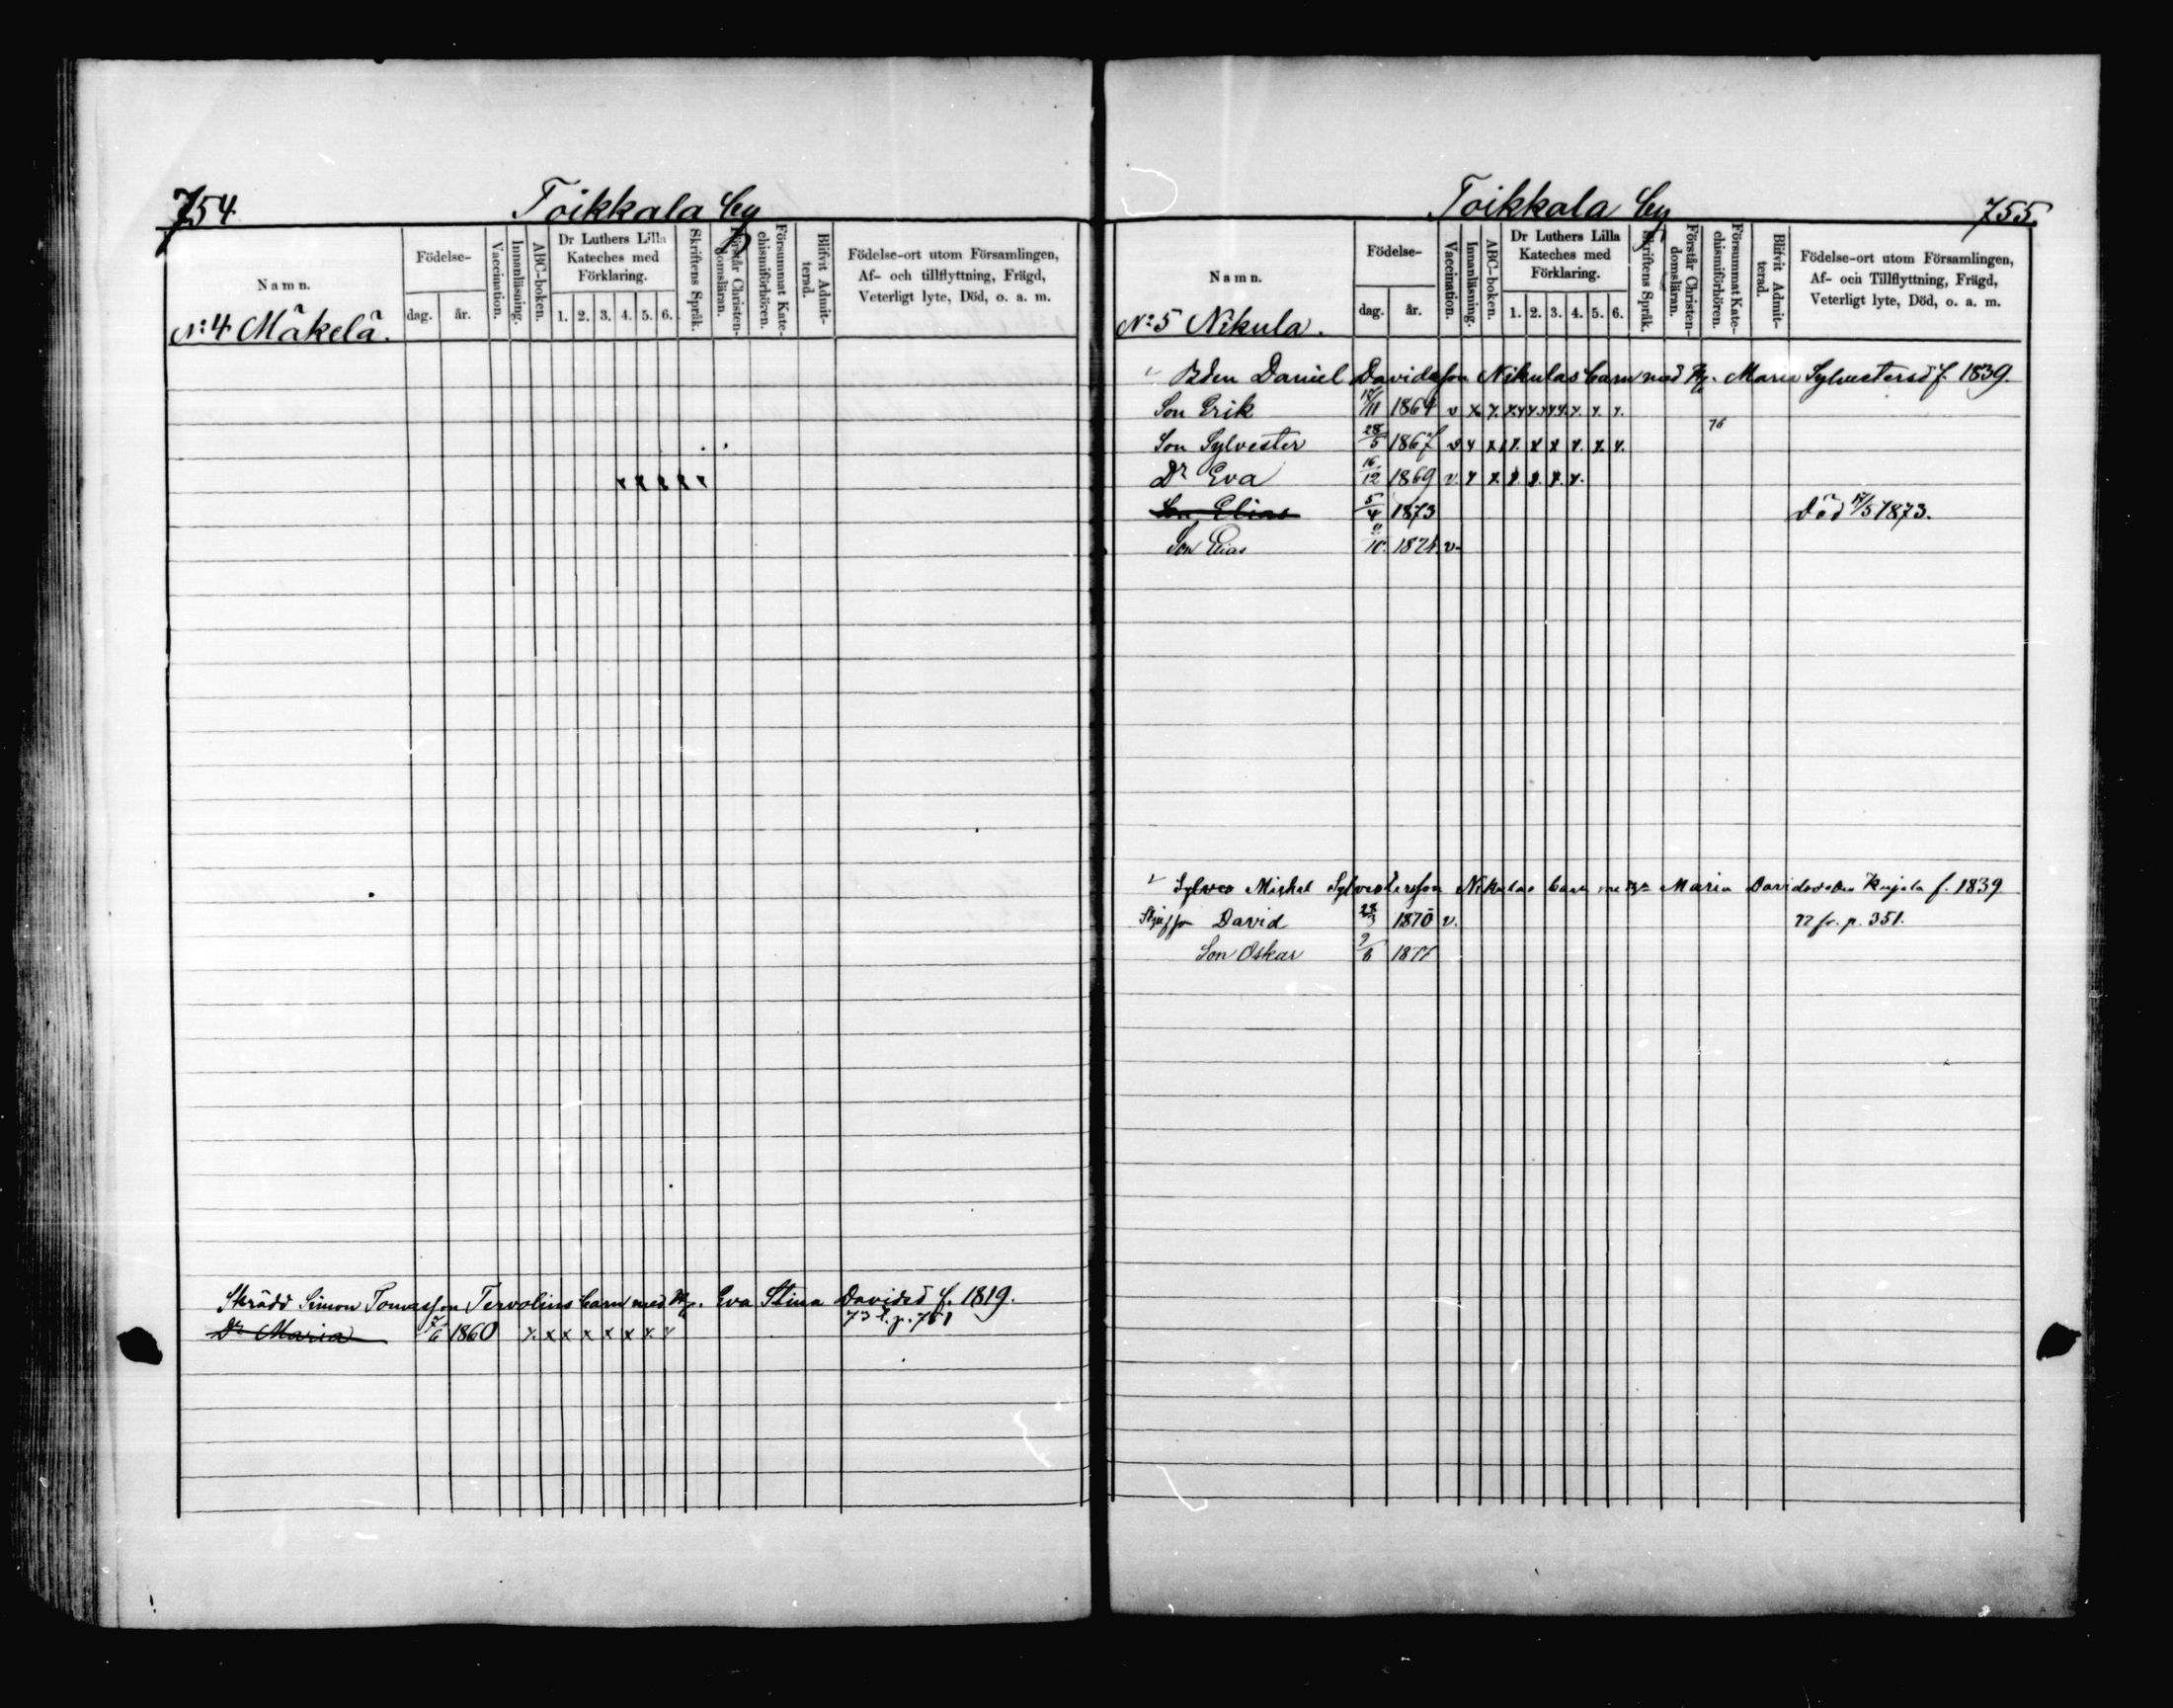 754 Toikkala by
Namn. Födelse- dag. år. Vaccination. Innanläsning. ABC-boken. Dr Luthers Lilla Kateches med Förklaring. 1. 2. 3. 4. 5. 6. Skriftens Språk. Förstår Christendomsläran. Försummat Katechismiförhören. Blifvit Admitterad. Födelse-ort utom Församlingen, Af- och tillflyttning, Frägd, Veterligt lyte, Död, o. a. m.
No: 4 Mäkelä.
x x x x x
Skrädd Simon Tomasson Tervolins barn med H. Eva Stina Davidsd f. 1819.
Dr Maria 7/6 1860 x x x x x x x x 73 t. p. 761
Toikkala by 755.
Namn. Födelse- dag. år. Vaccination. Innanläsning. ABC-boken. Dr Luthers Lilla Kateches med Förklaring. 1. 2. 3. 4. 5. 6. Skriftens Språk. Förstår Christendomsläran. Försummat Katechismiförhören. Blifvit Admitterad. Födelse-ort utom Församlingen, Af- och Tillflyttning, Frägd, Veterligt lyte, Död, o. a. m.
No: 5 Nikula.
Bden Daniel Davidsson Nikulas barn med H. Maria Sylvestersd f. 1839.
Son Erik 1864 v x x x x x x x x x
Son Sylvester 28/5 1867 v x x x x x x x x 76
Dr Eva 16/12 1869 v. x x x x x x
Son Elias 5/4 1873 Död 17/5 1873.
Son Elias 1874 v.
Michel Sylvestersson Nikulas barn med Maria Davidsd f. 1839
David 28/3 1870 v. 77 fr. p. 351.
Son Oskar 9/6 1877